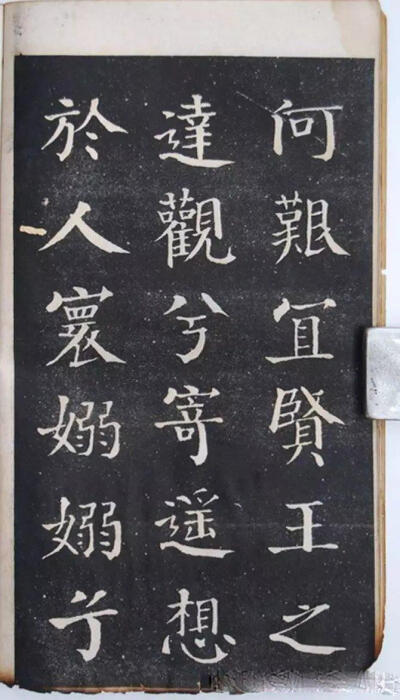 何艱冝賢王之
達觀兮寄遥想
於人寰嫋嫋兮